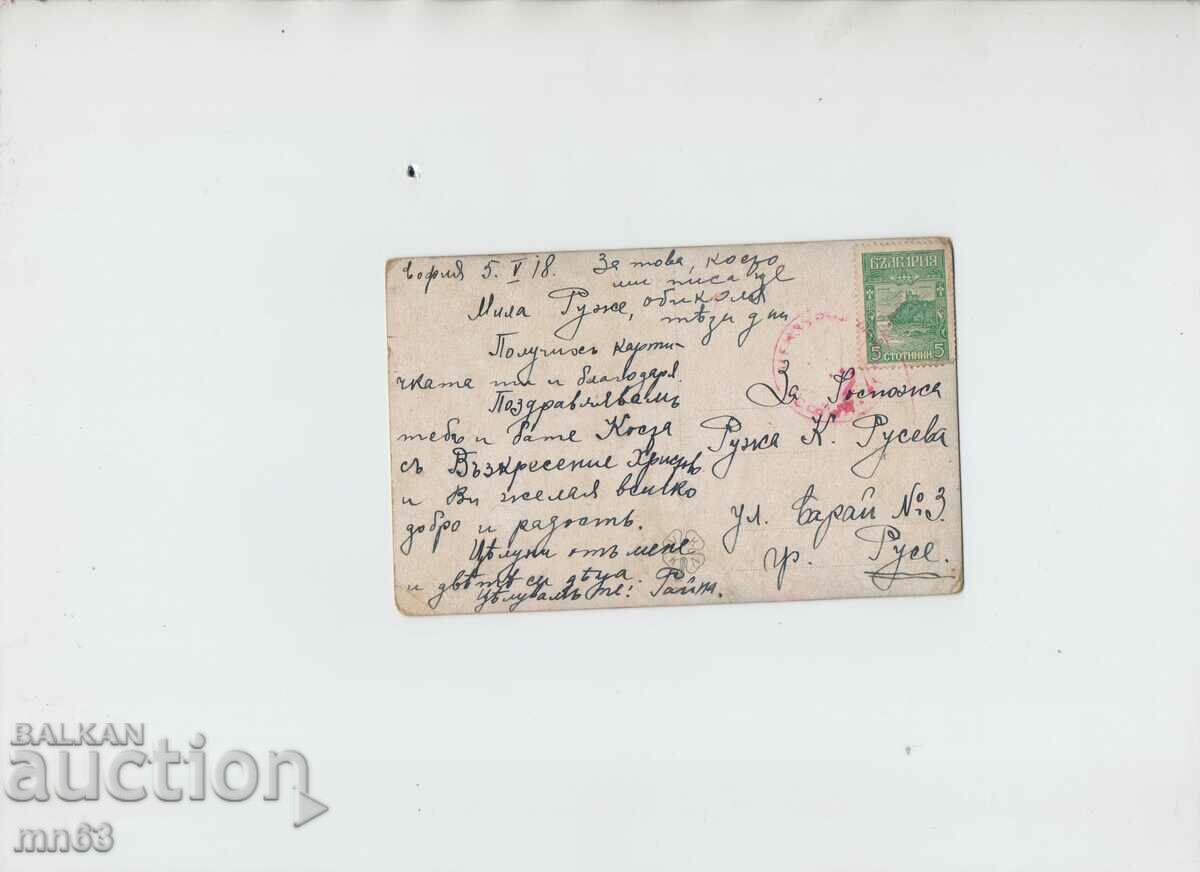 София 5. V 18.
За това, което
ми писа ще
обиколя
тѣзи дни
Мила Руже,
Получихъ карти-
чката ти и благодаря.
Поздравлявамъ
тебъ и бате Коста
съ Възкресение Христово
и Ви желая всичко
добро и радость.
Цѣлуни отъ мене
и двѣтѣ си дѣца.
Цѣлувамъ те:
БЪЛГАРИЯ
5 СТОТИНКИ 5
За Госпожа
Ружа К. Русева
ул. Сарай № 3.
гр. Русе.
BALKAN
auction
mn63